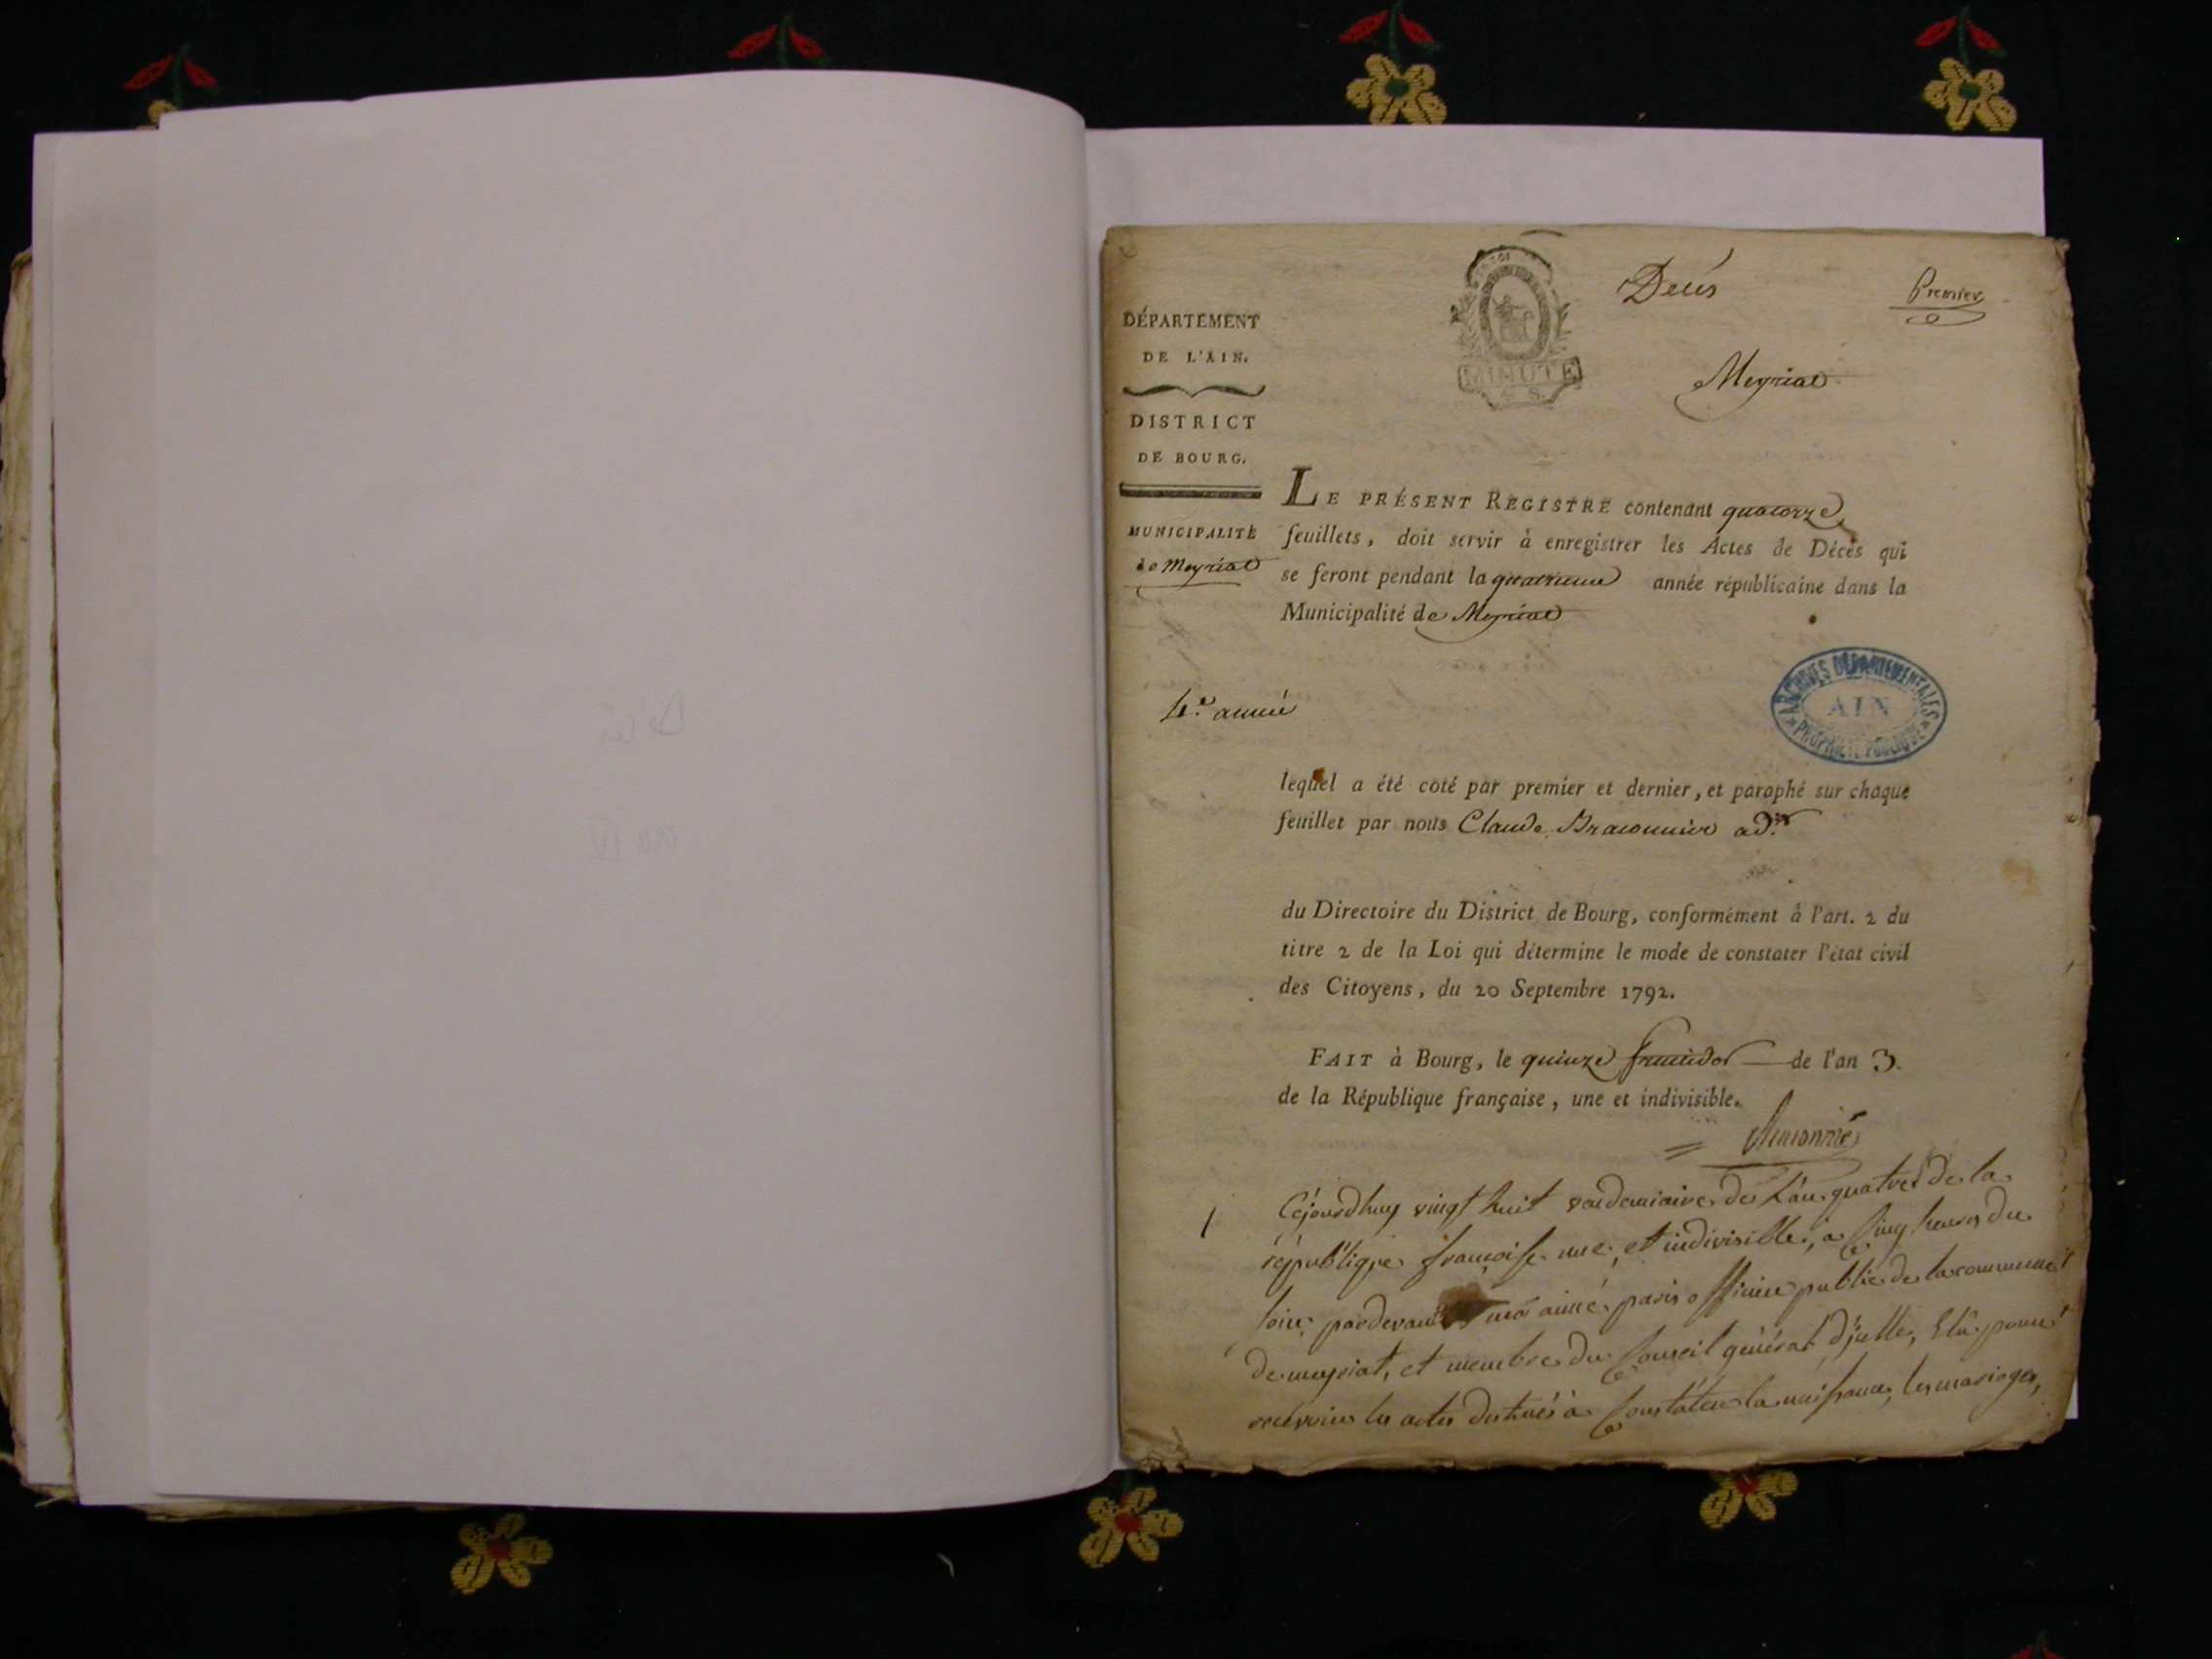 Décès
Premier
MINUTE
4 S.
Meyriat
DÉPARTEMENT
DE L'AIN.
DISTRICT
DE BOURG.
MUNICIPALITÉ
de Meyriat
LE PRÉSENT REGISTRE contenant quatorze
feuillets, doit servir à enregistrer les Actes de Décès qui
se feront pendant la quatrieme année républicaine dans la
Municipalité de Meyriat
4.e année
ARCHIVES DÉPARTEMENTALES
AIN
PROPRIÉTÉ PUBLIQUE
lequel a été coté par premier et dernier, et paraphé sur chaque
feuillet par nous Claude Braconnier ad.r
du Directoire du District de Bourg, conformément à l'art. 2 du
titre 2 de la Loi qui détermine le mode de constater l'état civil
des Citoyens, du 20 Septembre 1792.
FAIT à Bourg, le quinze fructidor de l'an 3.
de la République française, une et indivisible.
Braconnier
1
Cejourdhuy vingt huit vendemiaire de L'an quatre de la
république françoise une, et indivisible, a Cinq heures du
soir, pardevant moi aimé paris officier public de la commune
de meyriat, et membre du Conseil général d'jcelle, Elu pour
recevoir les actes destinés a Constater la naissance, les mariages,